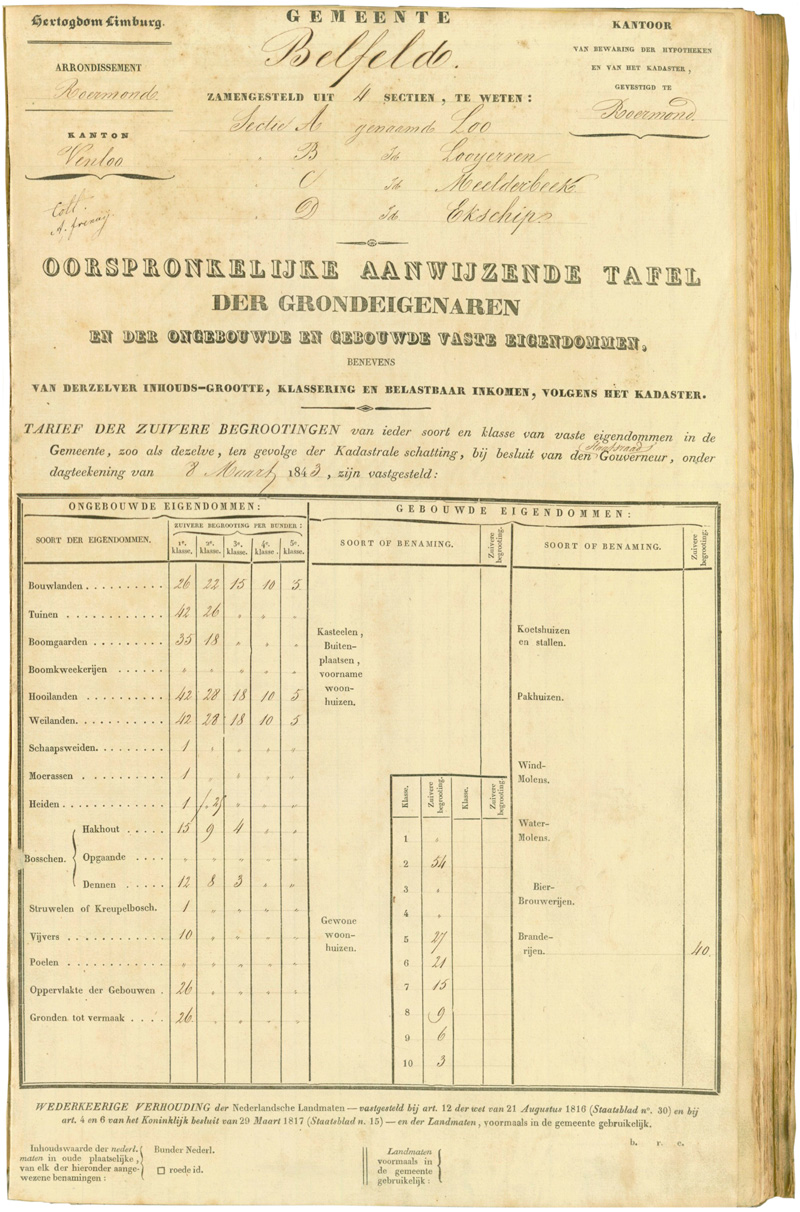 Hertogdom Limburg.
ARRONDISSEMENT
Roermond
KANTON
Venloo
Coll.
GEMEENTE
Belfeld.
ZAMENGESTELD UIT 4 SECTIEN, TE WETEN:
Sectie A genaamd Loo
B Id Looyerven
C Id Meelderbeek
D Id Ekschip
KANTOOR
VAN BEWARING DER HYPOTHEKEN
EN VAN HET KADASTER,
GEVESTIGD TE
Roermond
OORSPRONKELIJKE AANWIJZENDE TAFEL
DER GRONDEIGENAREN
EN DER ONGEBOUWDE EN GEBOUWDE VASTE EIGENDOMMEN,
BENEVENS
VAN DERZELVER INHOUDS-GROOTTE, KLASSERING EN BELASTBAAR INKOMEN, VOLGENS HET KADASTER.
TARIEF DER ZUIVERE BEGROOTINGEN van ieder soort en klasse van vaste eigendommen in de
Gemeente, zoo als dezelve, ten gevolge der Kadastrale schatting, bij besluit van den Gouverneur, onder
Staatsraad
dagteekening van 8 Maart 1843, zijn vastgesteld:
ONGEBOUWDE EIGENDOMMEN:
SOORT DER EIGENDOMMEN.
ZUIVERE BEGROOTING PER BUNDER:
1e. klasse. 2e. klasse. 3e. klasse. 4e. klasse. 5e. klasse.
Bouwlanden . . . . . . . . . . 26 22 15 10 5
Tuinen . . . . . . . . . . . . 42 26 " " "
Boomgaarden . . . . . . . . . 35 18 " " "
Boomkweekerijen . . . . . . " " " " "
Hooilanden . . . . . . . . . . 42 28 18 10 5
Weilanden. . . . . . . . . . . 42 28 18 10 5
Schaapsweiden. . . . . . . . . 1 " " " "
Moerassen . . . . . . . . . . 1 " " " "
Heiden . . . . . . . . . . . . 1 " " "
Bosschen.
Hakhout . . . . . 15 9 4 " "
Opgaande . . . . " " " " "
Dennen . . . . . 12 8 3 " "
Struwelen of Kreupelbosch. 1 " " " "
Vijvers . . . . . . . . . . . . 10 " " " "
Poelen . . . . . . . . . . . . " " " " "
Oppervlakte der Gebouwen . 26 " " " "
Gronden tot vermaak . . . . 26 " " " "
GEBOUWDE EIGENDOMMEN:
SOORT OF BENAMING.
Zuivere begrooting.
Kasteelen,
Buiten-
plaatsen,
voorname
woon-
huizen.
Gewone
woon-
huizen.
Klasse. Zuivere begrooting. Klasse. Zuivere begrooting.
1 "
2 54
3 "
4 "
5 27
6 21
7 15
8 9
9 6
10 3
SOORT OF BENAMING.
Zuivere begrooting.
Koetshuizen
en stallen.
Pakhuizen.
Wind-
Molens.
Water-
Molens.
Bier-
Brouwerijen.
Brande-
rijen. 40
WEDERKEERIGE VERHOUDING der Nederlandsche Landmaten — vastgesteld bij art. 12 der wet van 21 Augustus 1816 (Staatsblad n°. 30) en bij
art. 4 en 6 van het Koninklijk besluit van 29 Maart 1817 (Staatsblad n. 15) — en der Landmaten, voormaals in de gemeente gebruikelijk.
b. r. e.
Inhoudswaarde der nederl.
maten in oude plaatselijke,
van elk der hieronder aange-
wezene benamingen:
Bunder Nederl.
□ roede id.
Landmaten
voormaals in
de gemeente
gebruikelijk: